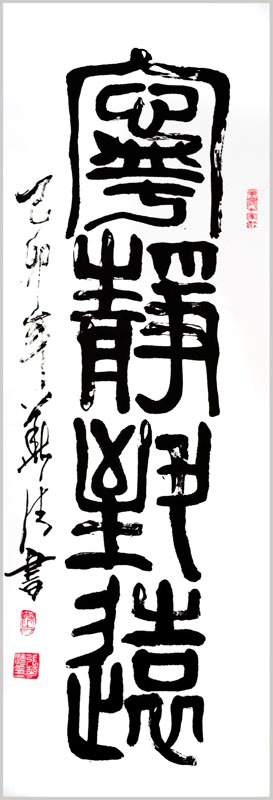 寧靜致遠
己卯年華清書